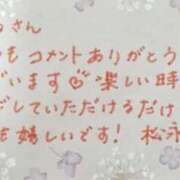 さん
もコメントありがとう
います♡楽しい時
していただけるだけ
も嬉しいです!松永